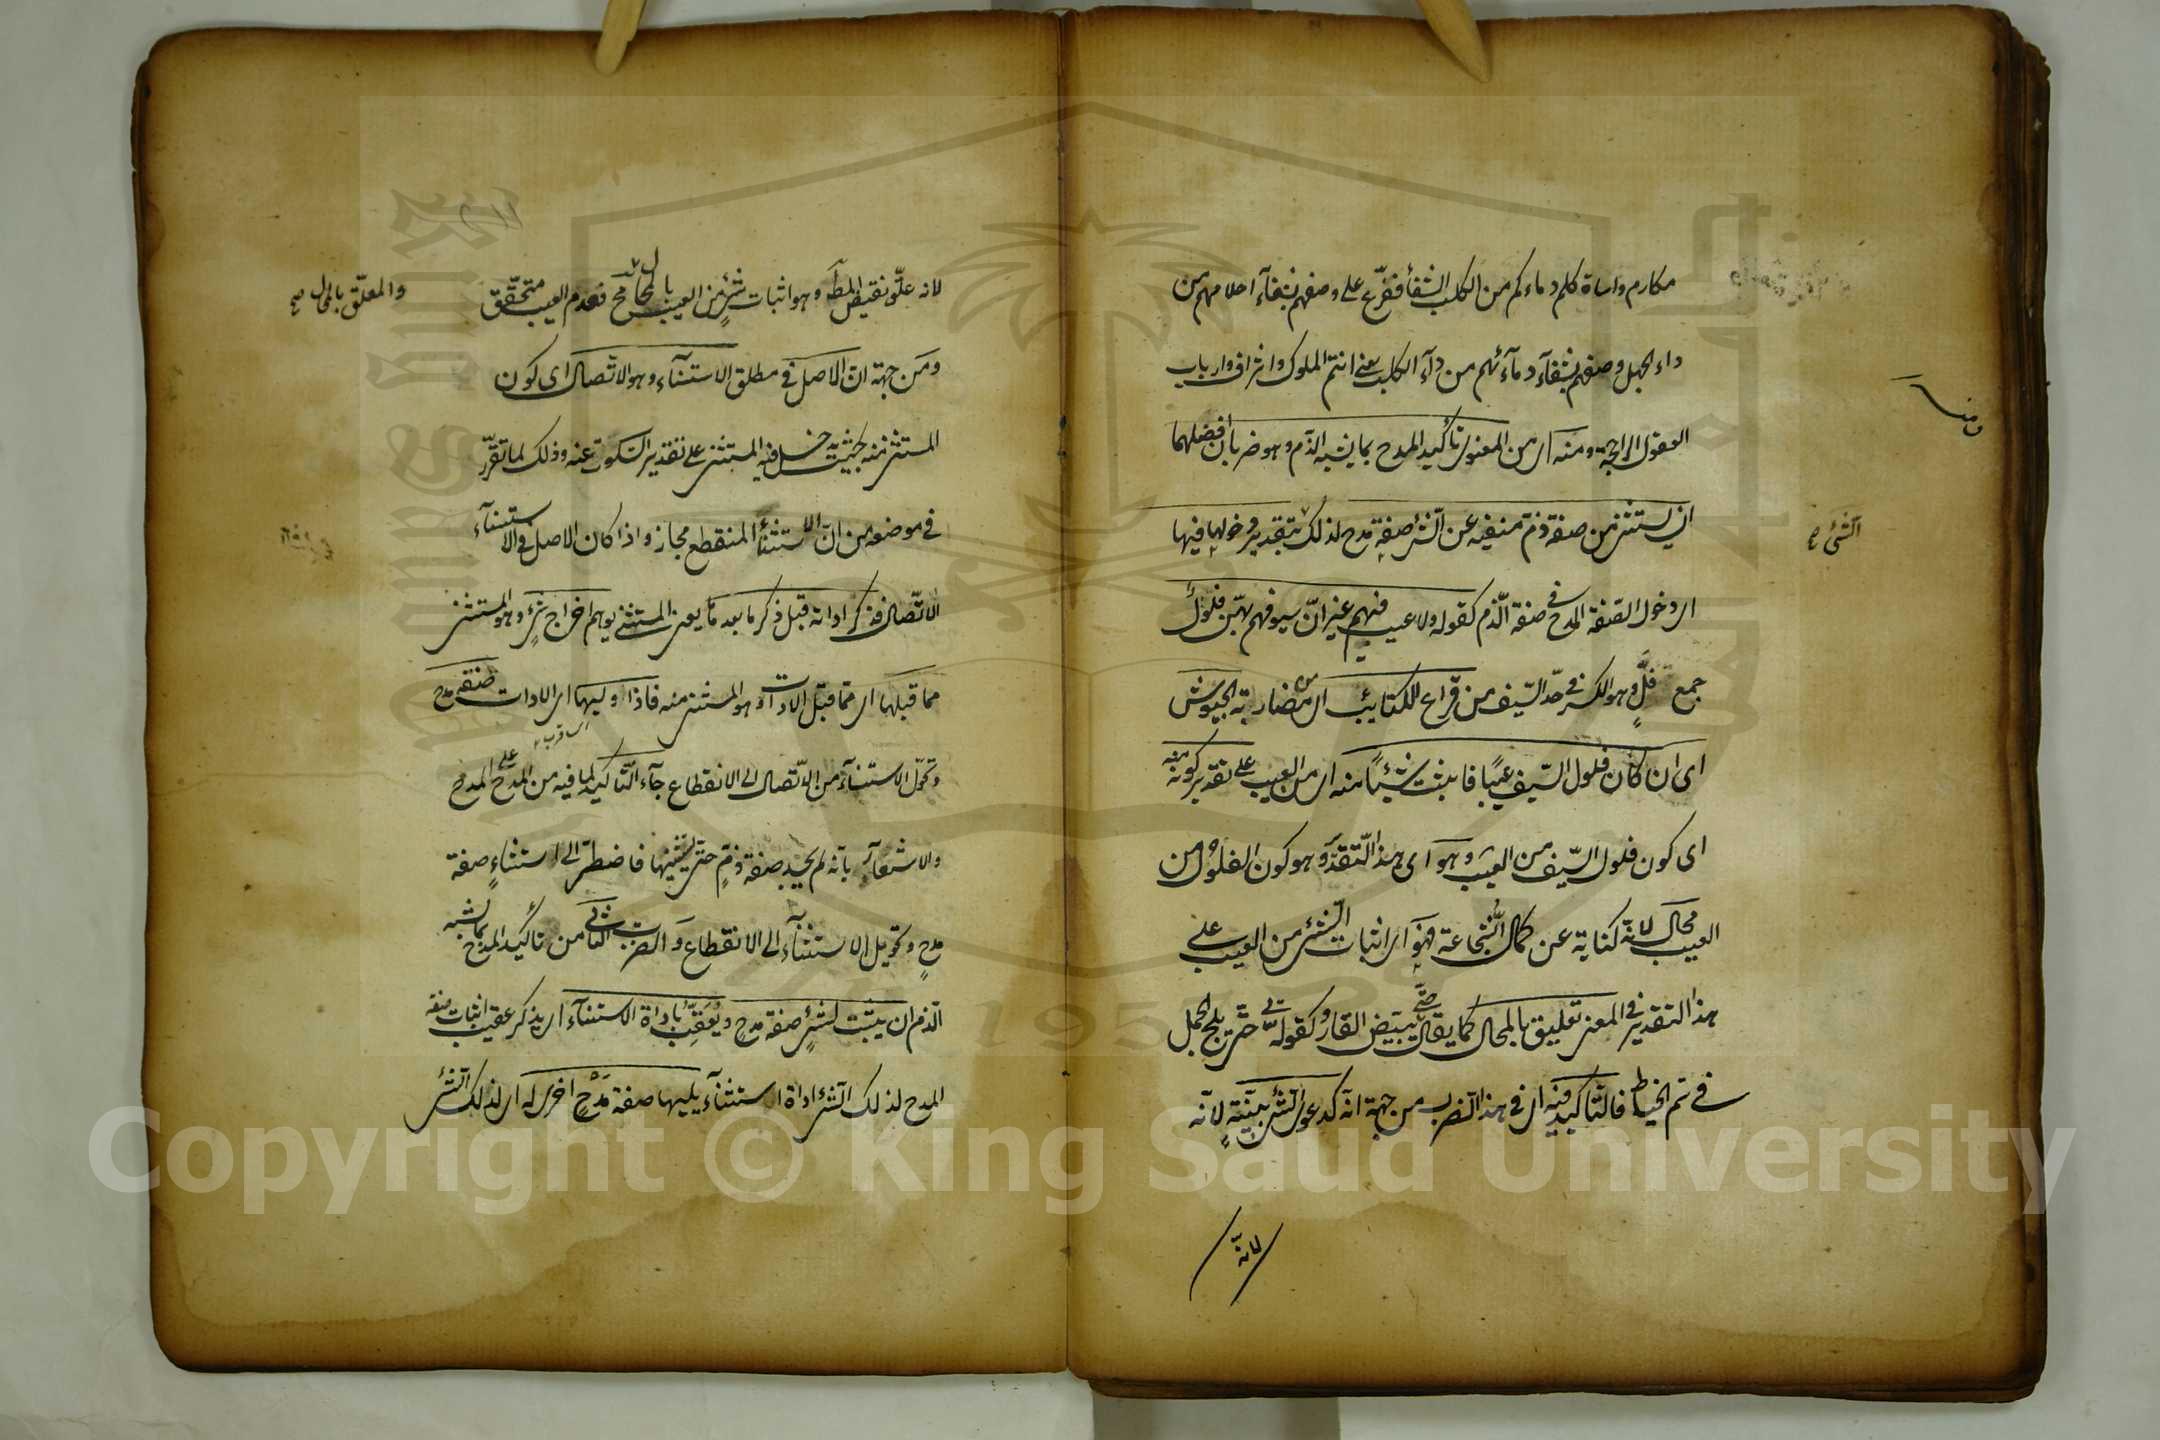 مكارم واساة كلم دماءكم من الكلب الشفأ ففرّع على وصفهم بشفآء احلامهم من
داء الجهل وصفهم بشفآء دمآئهم من دآء الكلب يعنى انتم الملوك واشراف وارباب
العقول الراجحة ومنه اى من المعنوى تأكيد المدح بما يشبه الذم وهو ضربان أفضلهما
ان يستثنى من صفة ذمّ منفية عن الشئ صفة مدح لذلك بتقدير دخولها فيها
الشئ صح
اى دخول الصّفة المدح فى صفة الذّم كقوله ولا عيب فيهم غير انّ سيوفهم بهنّ فلول
جمع فلٍّ وهو الكسر فى حدّ السّيف من قراع الكتائب اى من مضاربة الجيوش
اى ان كان فلول السّيف عيبًا فاثبت شيئًا منه اى من العيب على تقدير كونه منه
اى كون فلول السّيف من العيب وهو اى هذا التقدير وهو كون الفلول من
العيب محال لانّه كناية عن كمال الشّجاعة فهو اى اثبات الشّئ من العيب على
هذا التقدير فى المعنى تعليق بالمحال كما يقال حتّى يبيّض القار وكقوله تع حتّى يلج الجمل
فى سمّ الخياط فالتّأكيد فيه اى فى هذا الضرب من جهة انّه كدعوى الشّئ ببيّنةٍ لانّه
لانّه
لانه علّق نقيض المط وهو اثبات شئٍ من العيب بالمحال مح فعدم العيب متحقّق
والمعلّق بالمحال صح
ومن جهة انّ الاصل فى مطلق الاستثنآء وهو الاتّصال اى كون
المستثنى منه بحيث يدخل فيه المستثنى على تقدير السّكوت عنه وذلك لما تقرّر
فى موضعه من انّ الاستثنأ المنقطع مجاز واذا كان الاصل فى الاستثنآء
الاتّصال فذكر اداته قبل ذكر ما بعدها يعنى المستثنى يوهم اخراج شئٍ وهو المستثنى
مما قبلها اى ممّا قبل الادات وهو المستثنى منه فاذا وليها اى الادات صفة مدح
وتحوّل الاستثنآء من الاتّصال الى الانقطاع جآء التّأكيد لما فيه من المدح على المدح
والاشعار بانّه لم يجد صفة ذمٍّ حتّى يستثنيها فاضطرّ الى استثناءٍ صفة
مدحٍ وتحويل الاستثنآء الى الانقطاع والضرب الثّانى من تأكيد المدح بما يشبه
الذّم ان يثبت لشئٍ صفة مدحٍ ويعقّب باداة الاستثنآء اى يذكر عقيب اثبات صفة
المدح لذلك الشّئ اداة استثنآء يليها صفة مدحٍ اخرى له اى لذلك الشّئ
Copyright © King Saud University
King Saud University
1957